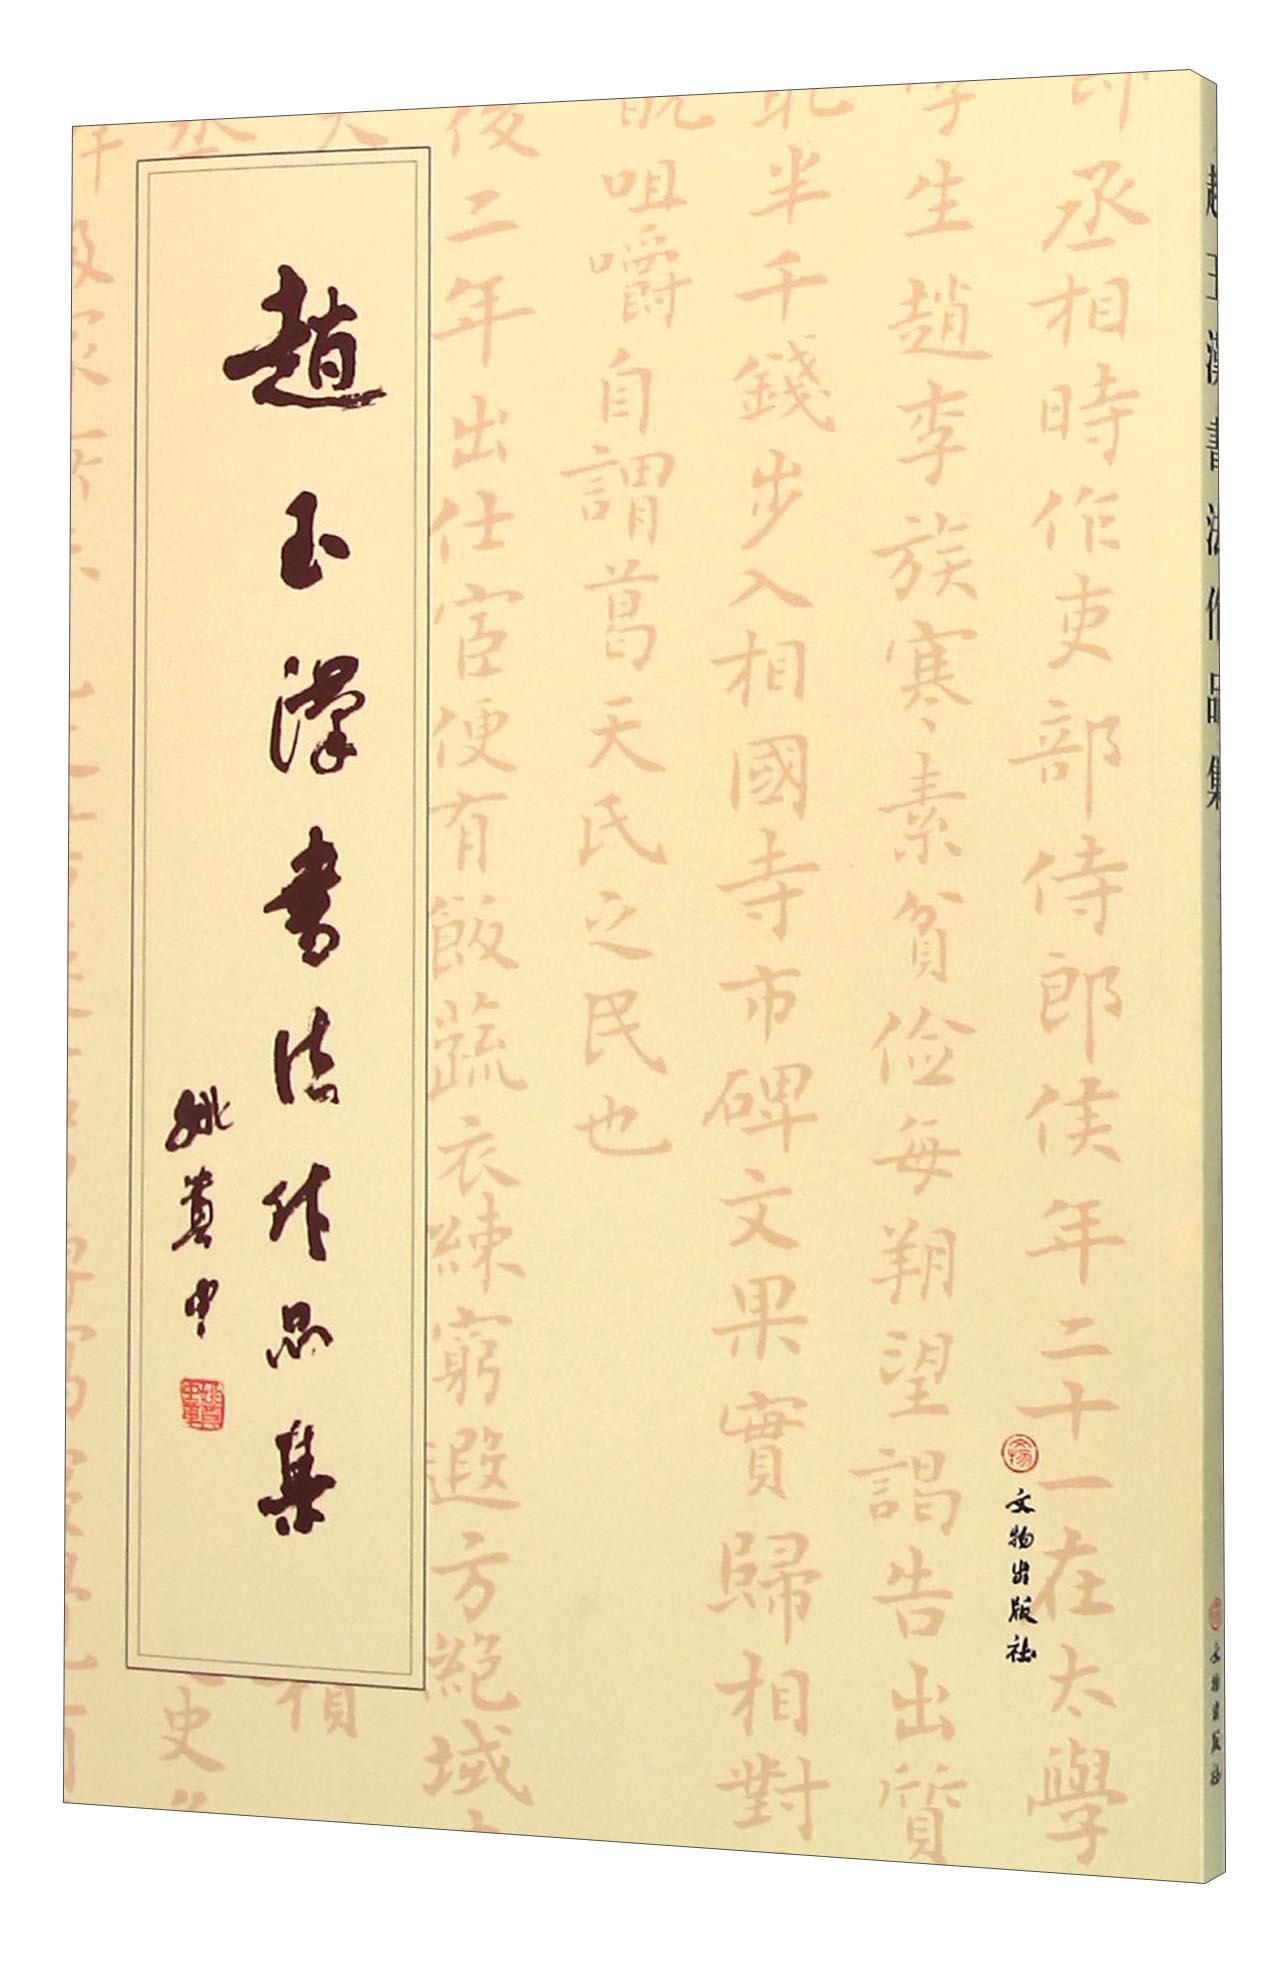 趙玉漢書法作品集
姚奠中
文物出版社
丞相時作吏部侍郎侯年二十一在太學
生趙李族寒素貧儉每朔望謁告出質
半千錢步入相國寺市碑文果實歸相對
咀嚼自謂葛天氏之民也
後二年出仕宦便有飯蔬衣練窮遐方絕域
趙玉漢書法作品集
文物出版社